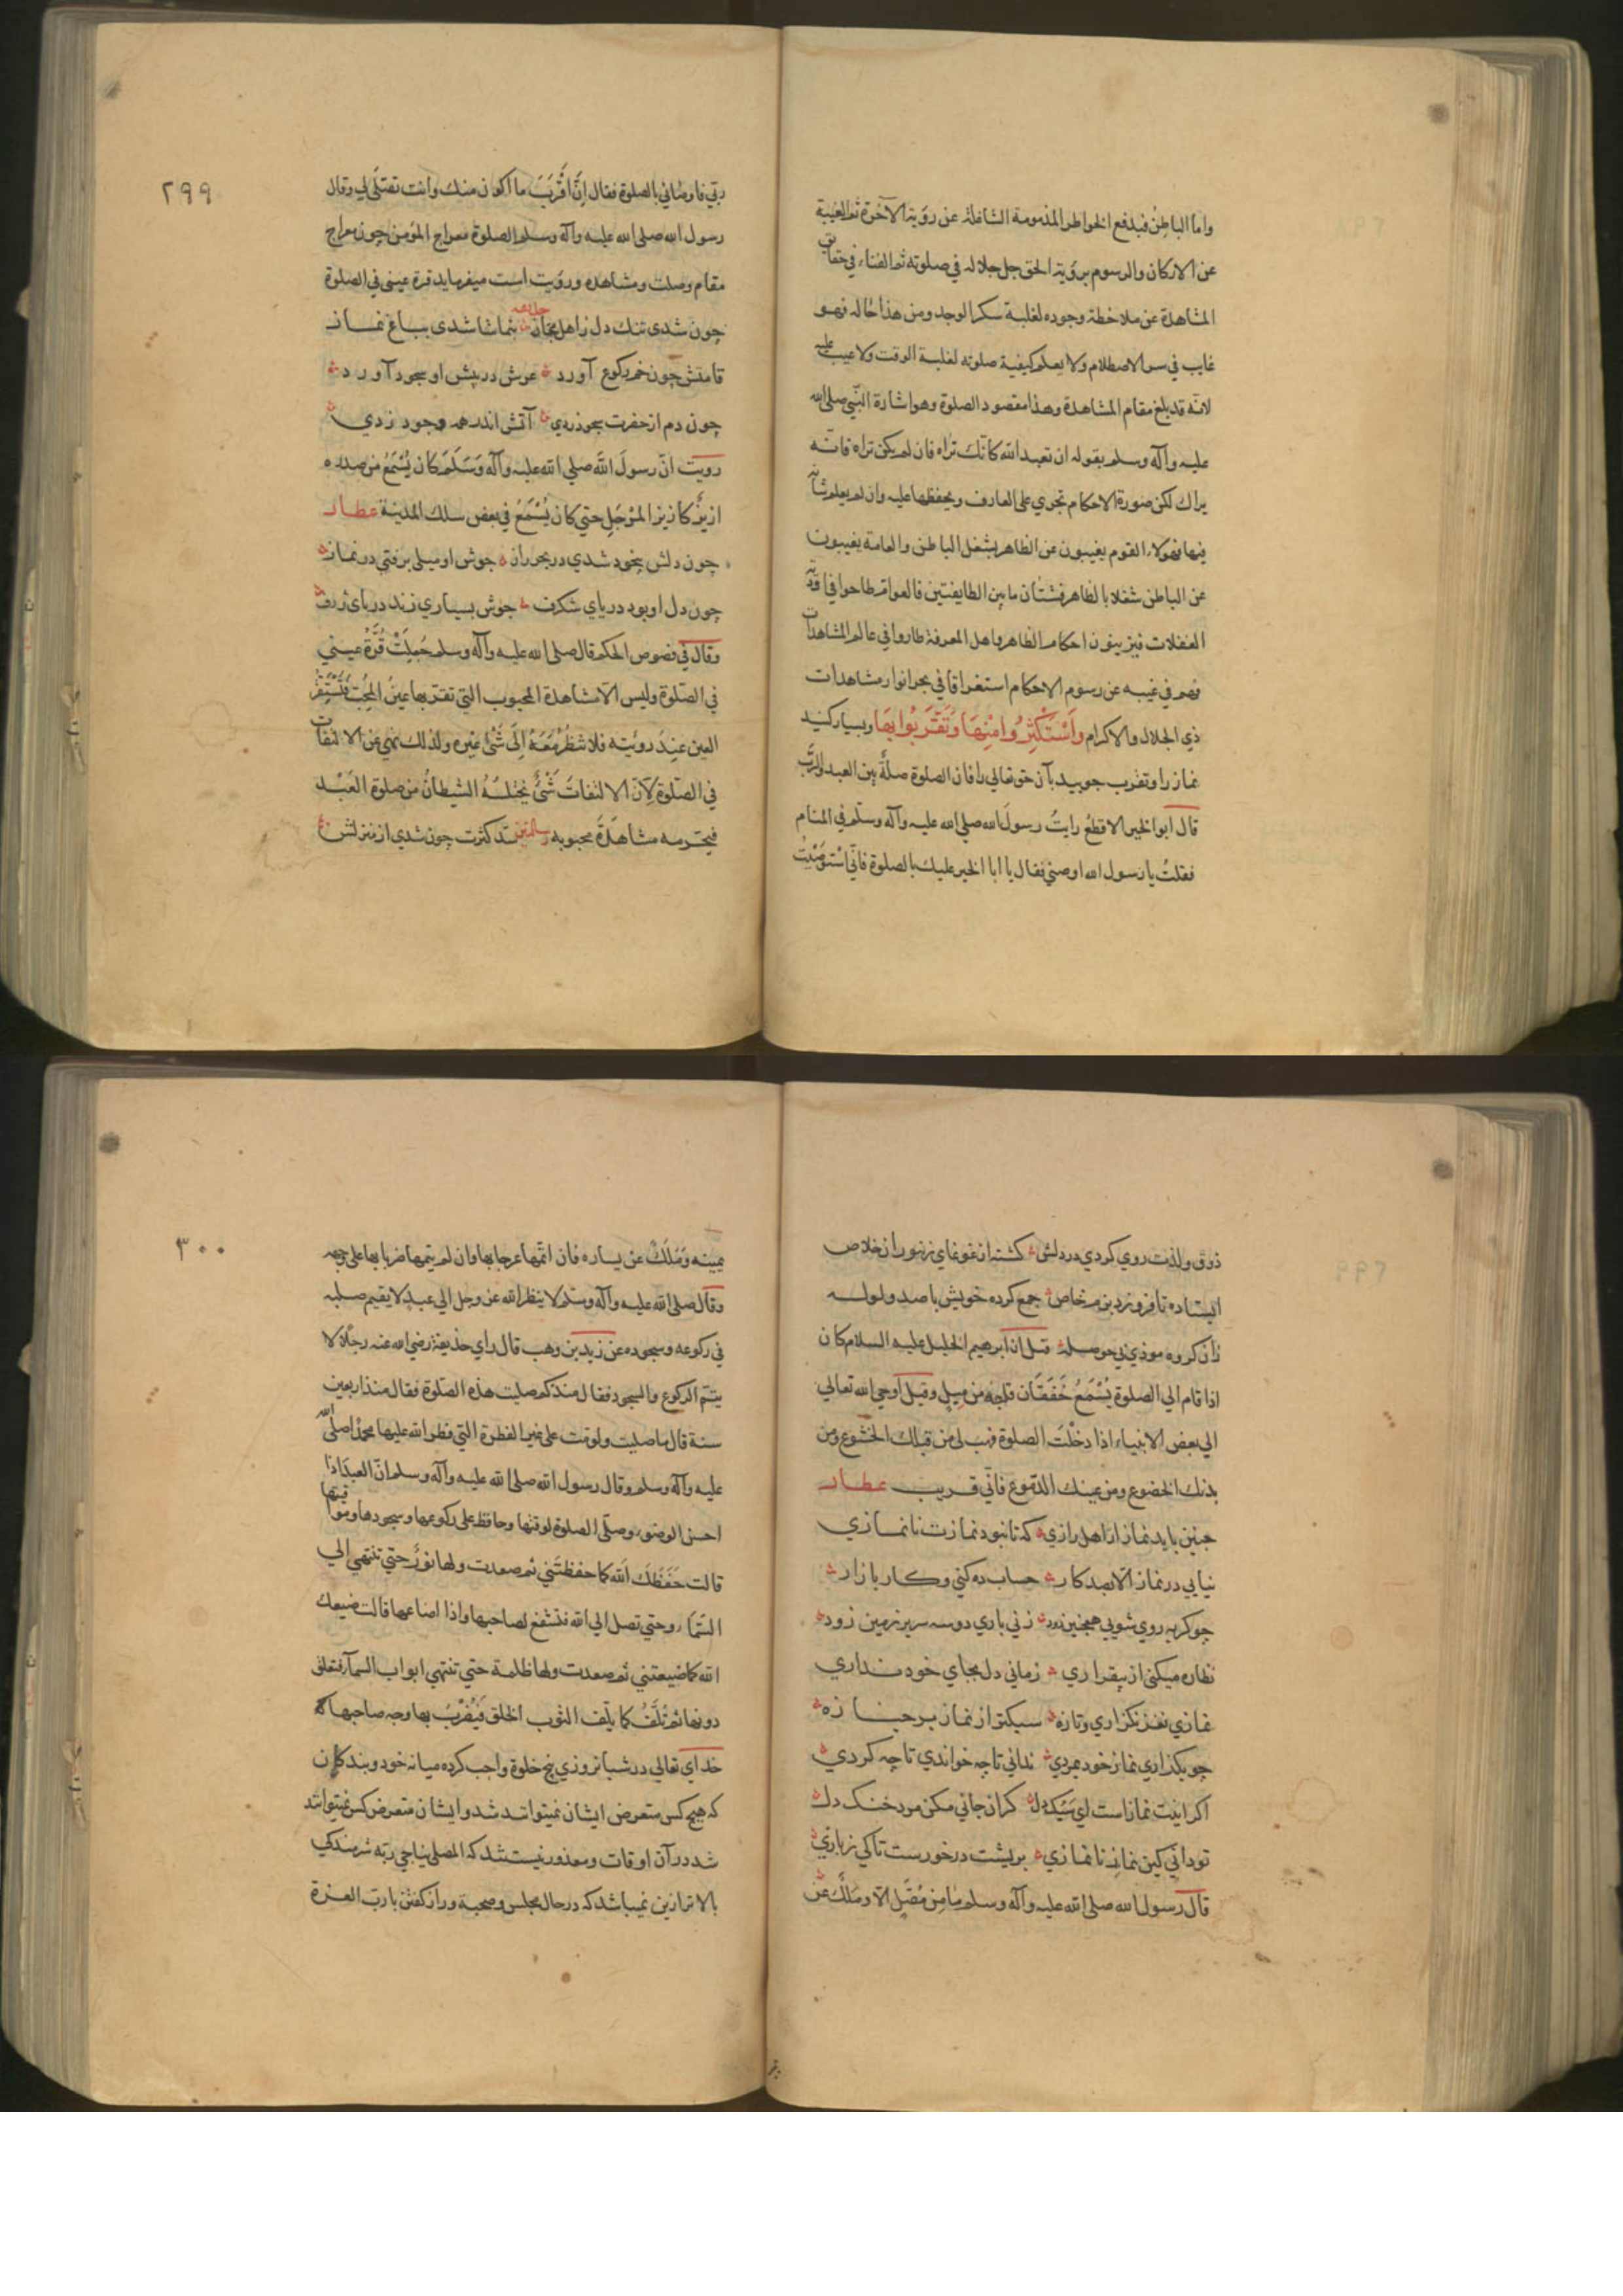 واما الباطن فبدفع الخواطر المذمومة الشاغلة عن رؤية الآخرة ثم الغيبة
عن الاركان والرسوم برؤية الحق جل جلاله في صلوته ثم الفناء في حقايق
المشاهدة عن ملاحظة وجوده لغلبة سكر الوجد ومن هذا حاله فهو
غايب في سر الاصطلام ولا يعلم كيفية صلوته لغلبة الوقت ولا عيب عليه
لانه قد بلغ مقام المشاهدة وهذا مقصود الصلوة وهو اشارة النبي صلى الله
عليه وآله وسلم بقوله ان تعبد الله كانك تراه فان لم يكن تراه فانه
يراك لكن صورة الاحكام تجري على العارف ويحفظها عليه وان لم يعلم شأنه
فيها فهولاء القوم يغيبون عن الظاهر بشغل الباطن والعامة يغيبون
عن الباطن شغلا بالظاهر فشتان ما بين الطايفتين فالعوام طاحوا في اودية
الغفلات فيزينون احكام الظاهر واهل المعرفة طاروا في عالم المشاهدات
فهم في غيبه عن رسوم الاحكام استغراقا في بحر انوار مشاهدات
ذي الجلال والاكرام وَاسْتَكْثِرُوا مِنْهَا وَتَقَرَّبُوا بِهَا وبسيار كنيد
نماز را وتقرب جوييد بآن حق تعالي را فان الصلوة صلةٌ بين العبد والرب
قال ابو الخير الاقطع رايتُ رسولَ الله صلى الله عليه وآله وسلم في المنام
فقلتُ يا رسول الله اوصني فقال يا ابا الخير عليك بالصلوة فاني استوصيتُ
٢٩٩
ربي فاوصاني بالصلوة فقال إنَّ اقْرَبَ ما اكون منك وانت تصلي لي وقال
رسول الله صلى الله عليه وآله وسلم الصلوة معراج المؤمن چون معراج
مقام وصلت ومشاهده ورؤيت است ميفرمايد قرة عيني في الصلوة
چون شدى تنك دل ز اهل مجاز بتماشا شدى بباغ نماز
قامتش چون خم ركوع آورد عرش در پيش او سجود آورد
چون دم از حضرت سجود زدي آتش اندر همه وجود زدي
رويت انّ رسولَ الله صلي الله عليه وآله وَسَلَّمَ كان يُسْمَعُ من صدره
ازيزٌ كازيز المرْجَلِ حتي كان يُسْمَعُ في بعض سكك المدينة عطار
چون دلش بيخود شدي در بحر راز جوش او ميلي برفتي در نماز
چون دل او بود درياي شكرف جوش بسياري زند درياى ژرف
وقال في فصوص الحكم قال صلى الله عليه وآله وسلم جُعِلَتْ قُرَّةُ عيني
في الصَّلوة وليس الا مشاهدة المحبوب التي تقرّ بها عينُ المحِبّ فَتَسْتَقِرُّ
العين عندَ رويته فلا ينظُر مَعَهُ اِلَى شَيْءٍ غيره ولذلك نهي عن الالتفات
في الصّلوة لِاَنّ الالتفاتَ شَيْءٌ يختلسُهُ الشيطانُ من صلوة العَبْد
فيحرمه مشاهَدَةَ محبوبه كثرت چون شدي از منزلش
ذوق ولذت روي كردي در دلش كشته از غوغاي زنبوران خلاص
ايستاده تا فرو زد بزم خاص جمع كرده خويش با صد ولوله
زان كروه موذي بي حوصله قيل ان ابرهيم الخليل عليه السلام كان
اذا قام الي الصلوة يُسْمَعُ خَفَقَان قلبه من مِيلٍ وقيل اوحي الله تعالي
الي بعض الانبياء اذا دخلْتَ الصلوة فهب لي من قبلك الخشوع ومن
بدنك الخضوع ومن عينك الدّموع فاني قريب عطار
چنين بايد نماز از اهل رازي كه تا نبود نمازت نا نمازي
نيابي در نماز الا بصد كار حساب ده كني وكار بازار
چو كربه روي شويي همچنين زود زني باري دو سه سر بر زمين زود
نظاره ميكني از بيقراري زماني دل بجاي خود نداري
نمازي نغز نكزاري وتازه سبكتر از نماز بر جنازه
چو بكذاري نماز خود بمردي نداني تا چه خواندي تا چه كردي
اكر اينت نماز است اي سبك دل كران جاني مكن مرد خنك دل
تو داني كين نماز نا نمازي بريشت در خورست تاكي زبازي
قال رسول الله صلى الله عليه وآله وسلم ما من مُصَلٍّ الا ومَلَكٌ عن
٣٠٠
يمينه وَمَلَكٌ عن يساره فان اتمّها عرجا بها وان لم يتمها ضربا بها على وجهه
وقال صلى الله عليه وآله وسلم لا ينظر الله عز وجل الي عبدٍ لا يقيم صلبه
في ركوعه وسجوده عن زيد بن وهب قال راي حذيفة رضي الله عنه رجلا لا
يتمّ الركوع والسجود فقال منذ كم صليت هذه الصّلوة فقال منذ اربعين
سنة قال ما صليت ولو مت على غير الفطرة التي فطر الله عليها محمدا صلى الله
عليه وآله وسلم وقال رسول الله صلى الله عليه وآله وسلم انّ العبدَ اذا
احسن الوضوء وصلّى الصلوة لوقتها وحافظ على ركوعها وسجودها ومواقيتها
قالت حَفَظَكَ الله كما حفظتَني ثم صعدت ولها نورٌ حتي تنتهي الي
السّماء وحتي تصل الي الله فتشفع لصاحبها واذا اضاعها قالت ضيعك
الله كما ضيعتني ثم صعدت ولها ظلمة حتي تنتهي ابواب السمآء فتغلق
دونها ثم تُلَفُّ كما يلف الثوب الخلق فَيُضْرَبُ بها وجه صاحبها كه
خداي تعالي در شبانروزي پنج خلوة واجب كرده ميانه خود وبندكان
كه هيچ كس متعرض ايشان نميتواند شد وايشان متعرض كس نميتوانند
شد در آن اوقات ومعذور نيست شد كه المصلي يناجي ربّه شرمندكي
بالاتر ازين نميباشد كه در حال مجلس وصحبة وراز كفتن با رب العزة